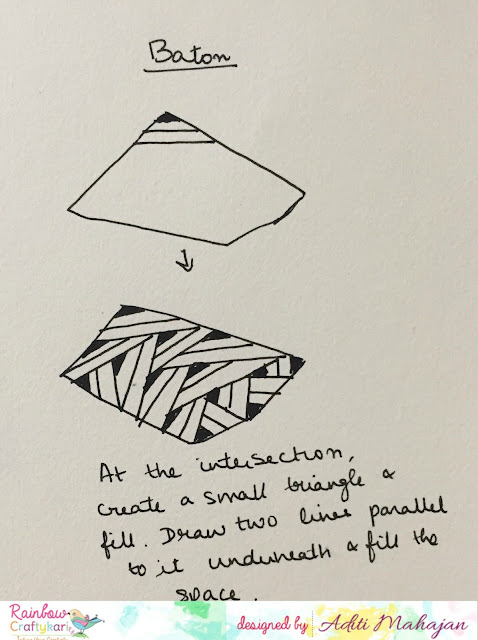 Baton
At the intersection,
create a small triangle &
fill. Draw two lines parallel
to it underneath & fill the
space.
Rainbow
Craftykari
designed by Aditi Mahajan